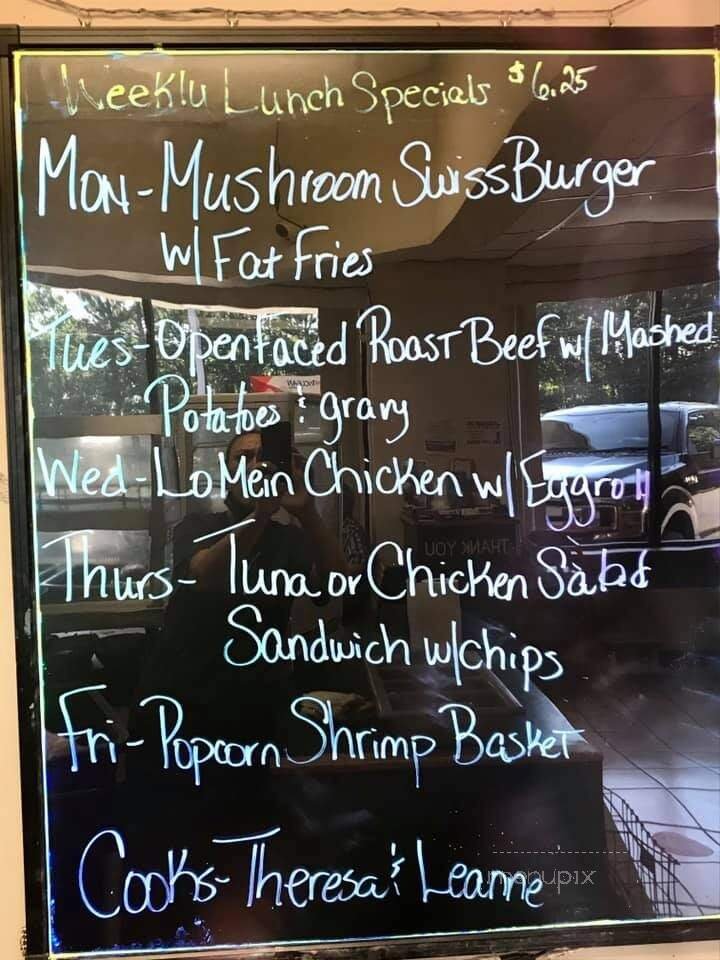 Weekly Lunch Specials $6.25
Mon-Mushroom Swiss Burger
w/ Fat Fries
Tues-Openfaced Roast Beef w/ Mashed
Potatoes & gravy
Wed-LoMein Chicken w/ Eggroll
Thurs- Tuna or Chicken Salad
Sandwich w/chips
Fri-Popcorn Shrimp Basket
Cooks-Theresa & Leanne
menupix
THANK YOU